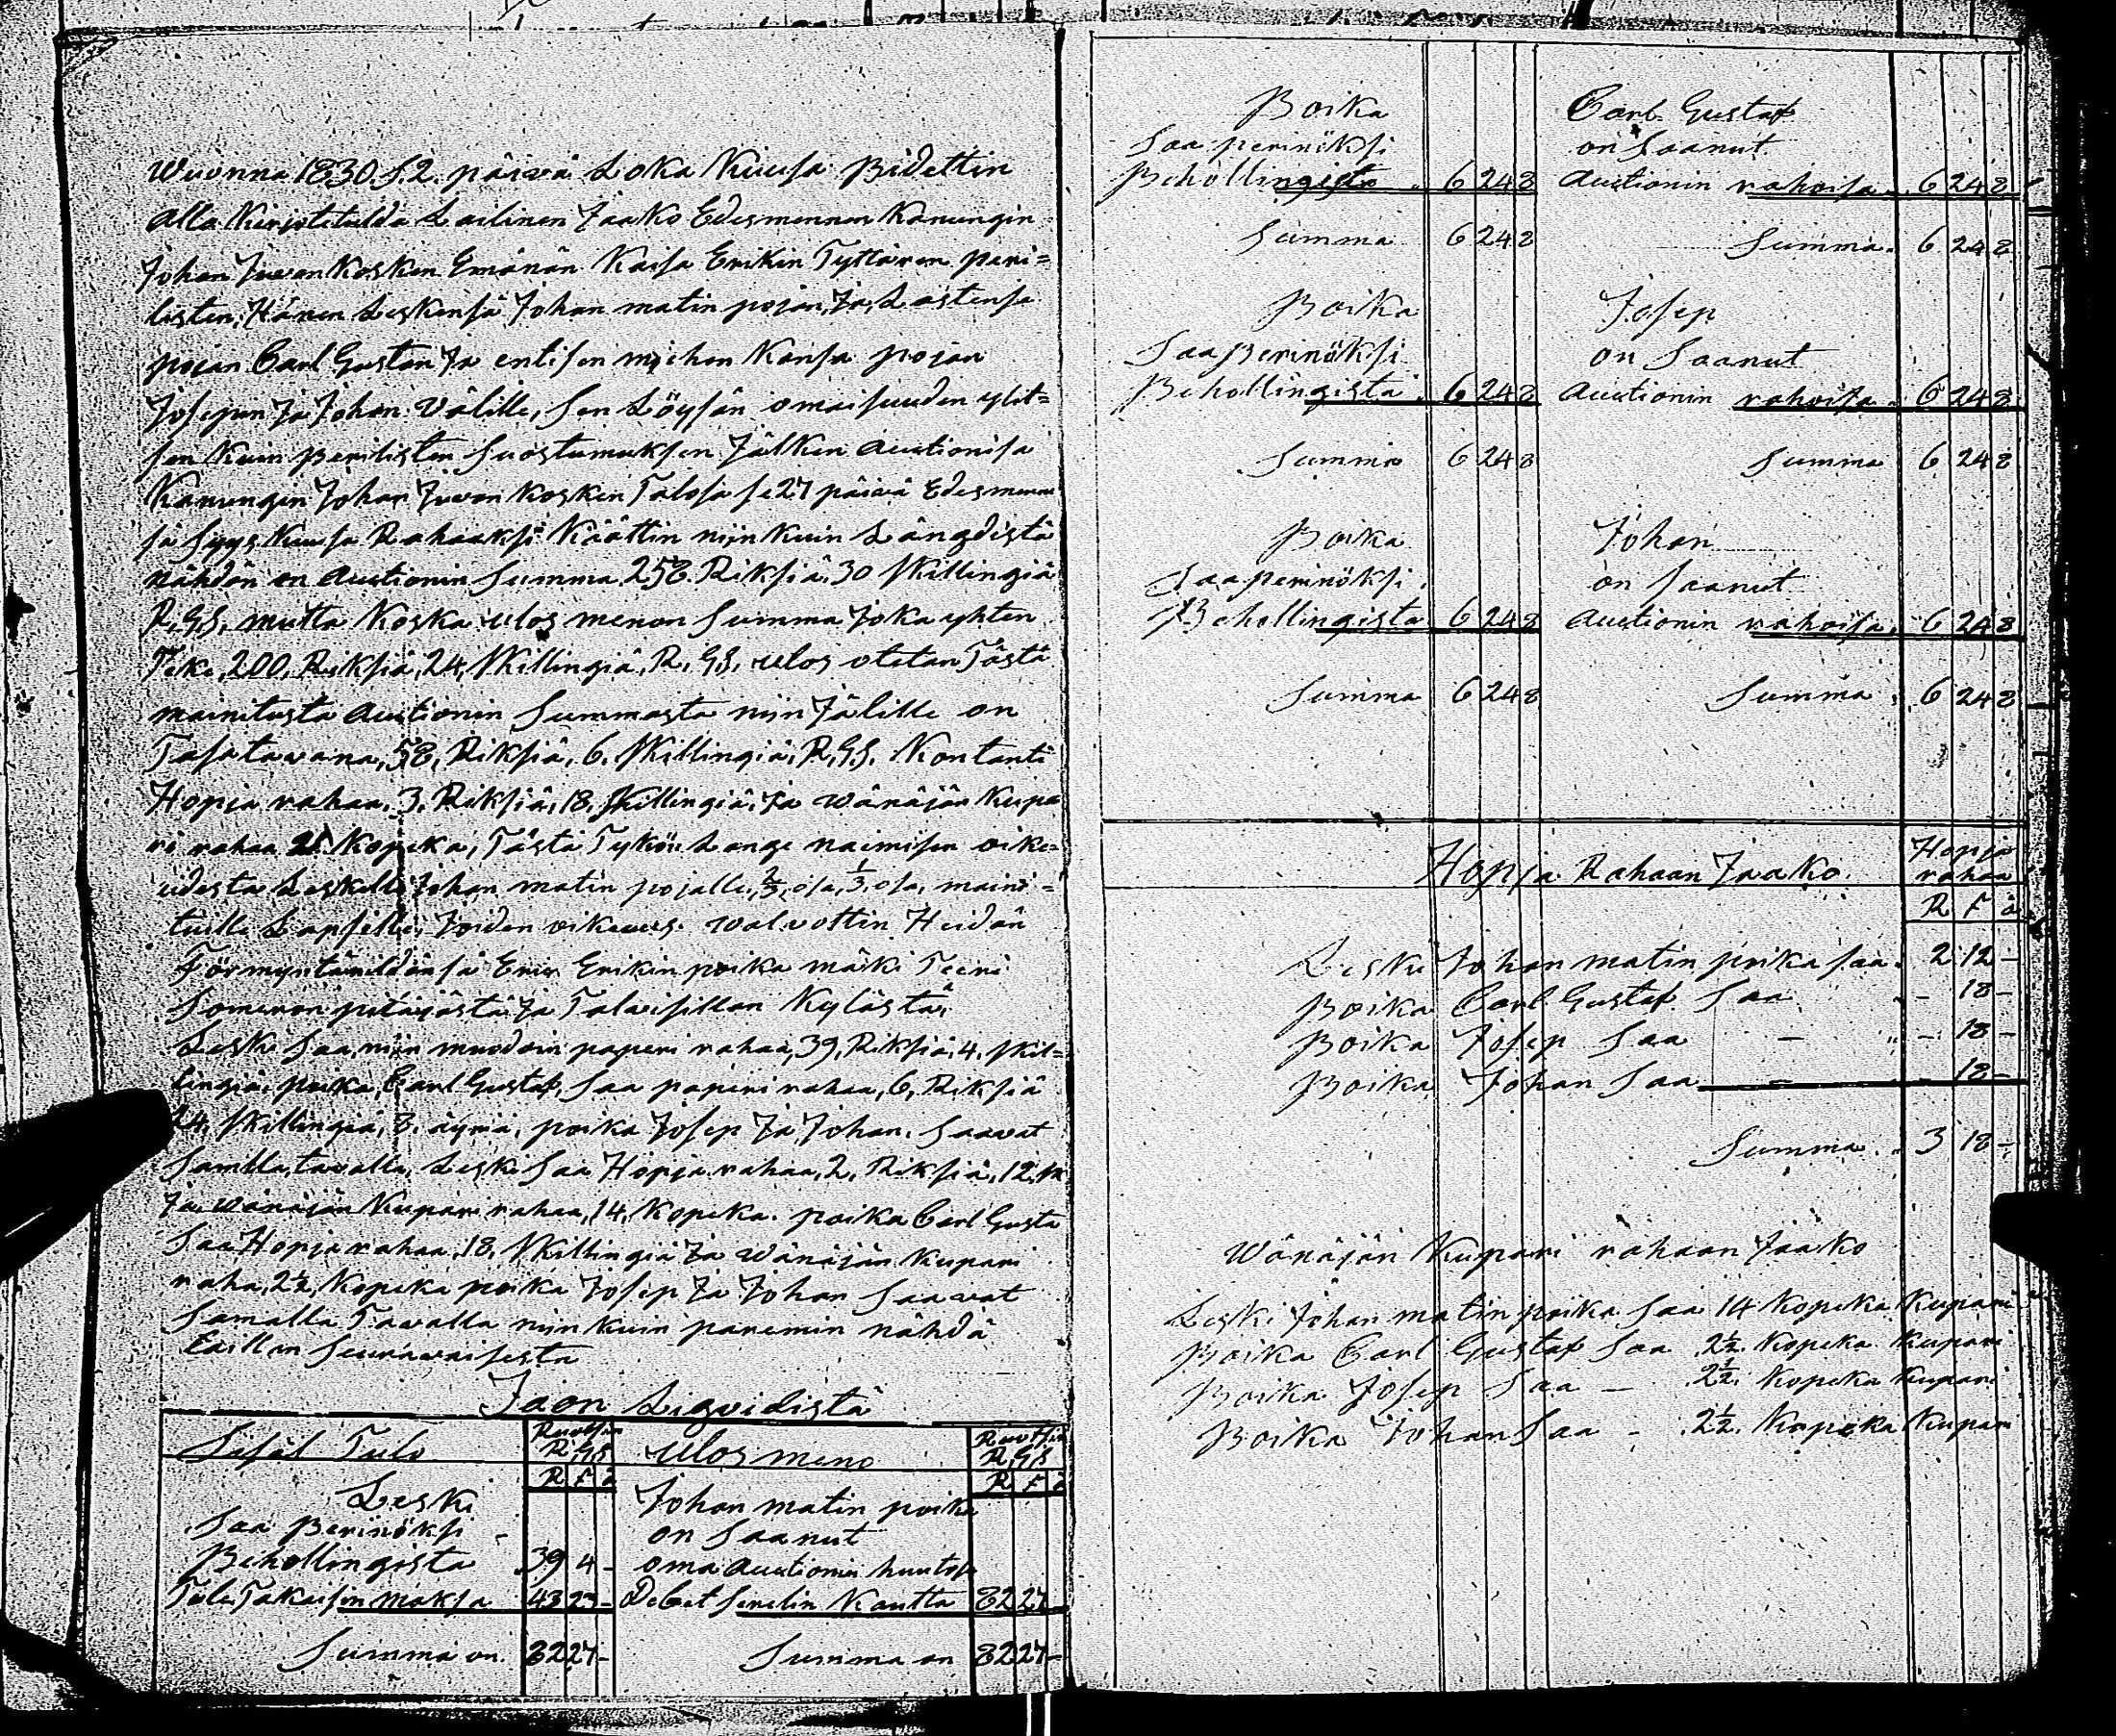 Wuonna 1830. S. 2. päivä Loka Kuusa Pidettin
alla Kirjotetulda Lailinen Jaako Edesmennen Kanungin
Johan Juvankosken Emänän Kaisa Erikin Tyttären peri=
listen, Hänen Leskensä Johan matin pojan, Ja, Lastensa
pojan Carl Gustan Ja entisen miehen Kansa pojan
Josepin Ja Johan Välille, sen Löysän omaisuuden ylit=
sen Kuin perilisten Suostumuksen Jälken Auctionisa
Kanungin Johan Juvankosken Talosa se 27 päivä Edesmenne
sä Syys Kuusa Rahaaksi Käättin niinkuin Längdistä
nähdän on Auctionin Summa, 258. Riksiä. 30 skillingiä
R,GS, mutta Koska ulos menon Summa Joka yhten
Teke, 200, Riksiä, 24, skillingiä, R, GS, ulos otetan Tästä
mainitusta Auctionin Summasta niin Jälille on
Jasatavana, 58, Riksiä, 6. skillingiä, R,GS, Kontanti
Hopja rahaa, 3. Riksiä, 18, skillingiä, Ja wänäjän Kupa
ri rahaa 21 Kopeka, Tästä Tykön Lange naimisen oike=
udesta Leskelle Johan matin pojalle, 2/3, osa, 1/3, osa, maini=
tuille Lapsille, Joiden oikeus walvottin Heidän
Förmyntärildänsä Eric Erikin poika mäki Teeri
Someron pitäjästä Ja Talvisillan Kylästä,
Leski Saa, niin muodoin paperi rahaa, 39, Riksiä, 4, skil=
lingiä, poika, Carl Gustaf, Saa paperi rahaa, 6, Riksiä
24, skillingiä, 8. äyriä, poika Josep Ja Johan, Saavat
Samalla, tavalla, Leski Saa Hopja rahaa, 2, Riksiä, 12, sk
Ja wänäjän Kupari rahaa, 14, Kopeka. poika Carl Gusta
Saa Hopja rahaa, 18, skillingiä Ja wänäjän Kupari
raha, 2½, Kopeka poika Josep Ja Johan Saavat
Samalla Tavalla niinkuin paremin nähdä
Taillan Seuravaisesta
Jaon Liqvidistä
Sisäl Tulo Ruottin R,GS ulos meno Ruottin R,GS
R f ö R f ö
Leski Johan matin poika
Saa Perinöksi on Saanut
Behollingista 39 4 - oma Auctionin huutosa
Tule Takaisin maksa 43 23 - Debet Senelin Kautta 82 27 -
Summa on 82 27 - Summa on 82 27 -
Poika Carl Gustaf
Saa perinöksi on Saanut
Behollingista 6 24 8 Auctionin rahoisa 6 24 8
Summa 6 24 8 Summa 6 24 8
Poika Josep
Saa Perinöksi on Saanut
Behollingista 6 24 8 Auctionin rahoisa 6 24 8
Summa 6 24 8 Summa 6 24 8
Poika Johan
Saa perinöksi on Saanut
Behollingista 6 24 8 Auctionin rahoisa 6 24 8
Summa 6 24 8 Summa 6 24 8
Hopja Rahaan Jaako Hopja rahaa
R f ö
Leski Johan matin poika saa 2 12 -
Poika Carl Gustaf Saa - 18 -
Poika Josep Saa - - 18 -
Poika Johan Saa - - 18 -
Summa 3 18 -
Wänäjän Kupari rahaan Jaako
Leski Johan matin poika Saa 14 Kopeka Kupari
Poika Carl Gustaf Saa 2½ Kopeka Kupari
Poika Josep Saa - 2½ Kopeka Kupari
Poika Johan Saa - 2½ Kopeka Kupari